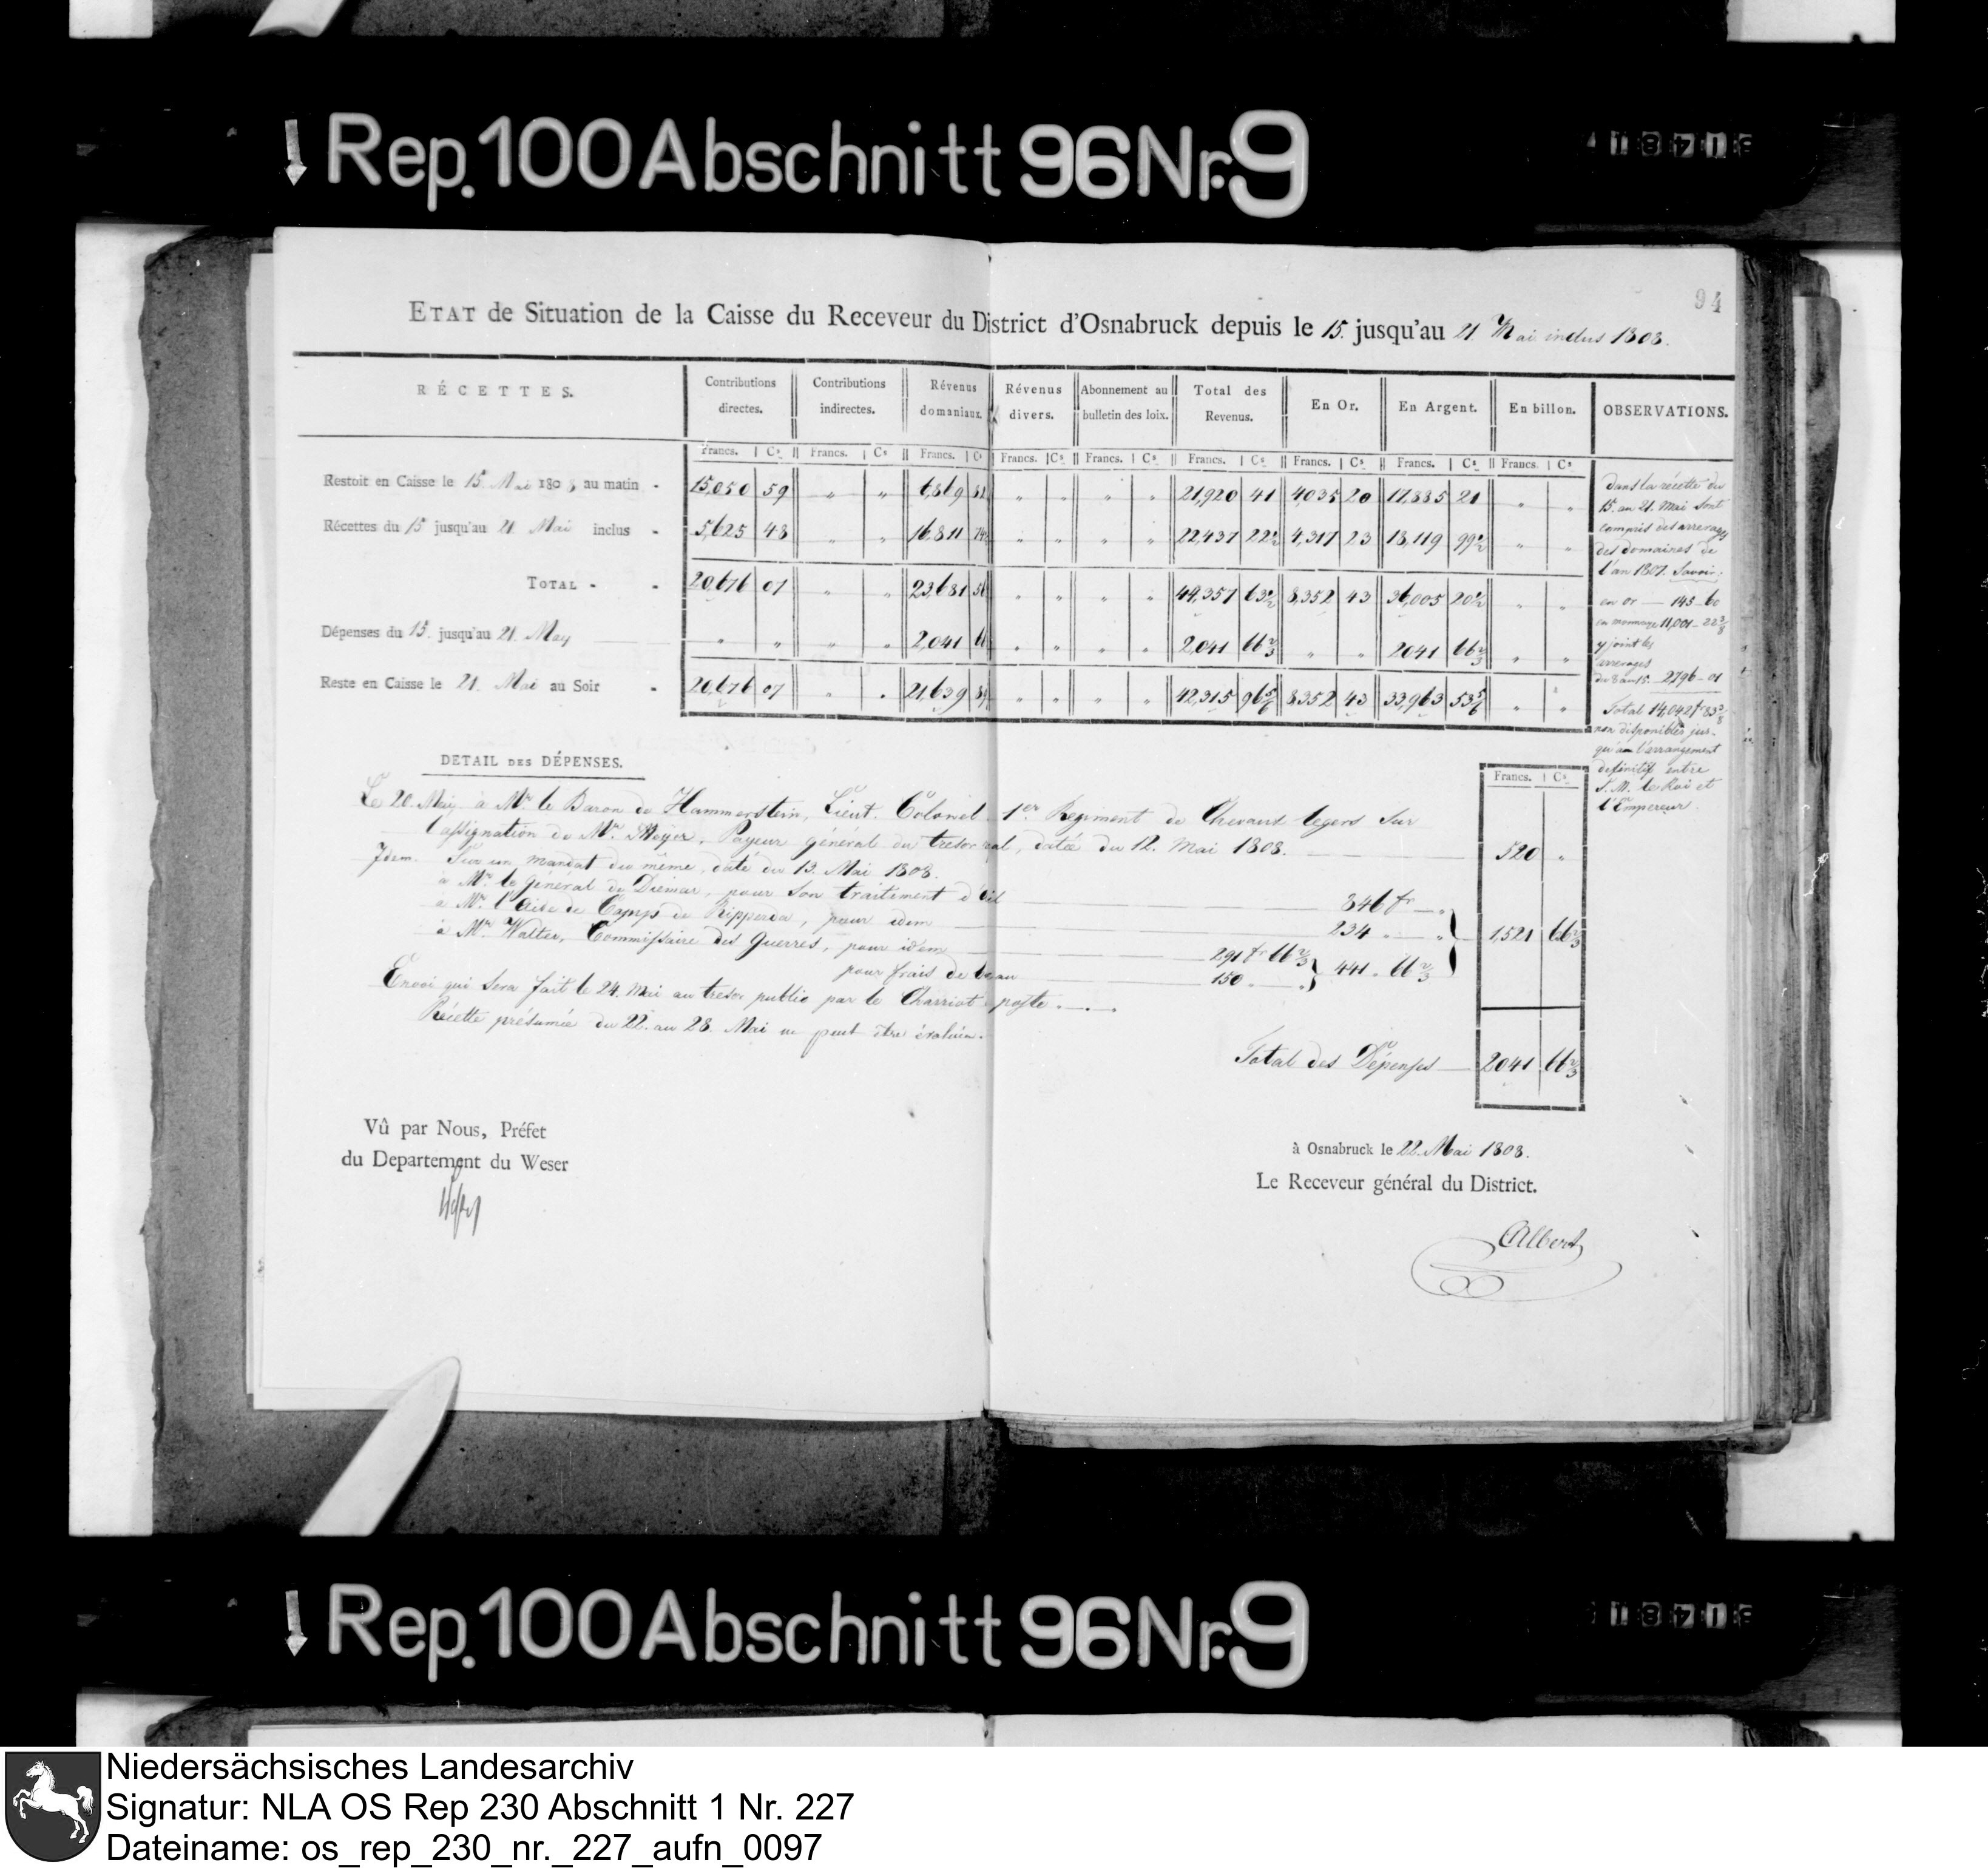 ↓ Rep. 100 Abschnitt 96 Nr. 9
94
ETAT de Situation de la Caisse du Receveur du District d'Osnabruck depuis le 15. jusqu'au 21. Mai inclus 1808.
RÉCETTES. Contributions directes. Contributions indirectes. Révenus domaniaux. Révenus divers. Abonnement au bulletin des loix. Total des Revenus. En Or. En Argent. En billon. OBSERVATIONS.
Francs. Cs Francs. Cs Francs. Cs Francs. Cs Francs. Cs Francs. Cs Francs. Cs Francs. Cs Francs. Cs
Restoit en Caisse le 15. Mai 1808, au matin - 15,050 59 " " 6,869 " " " " 21,920 41 4,035 20 17,885 21 " "
Récettes du 15 jusqu'au 21 Mai inclus - 5,625 48 " " 16,811 " " " " 22,437 22½ 4,317 23 18,119 99½ " "
TOTAL - - 20,676 07 " " 23,681 " " " " 44,357 63½ 8,352 43 36,005 20½ " "
Dépenses du 15. jusqu'au 21. May " " " " 2,041 " " " " 2,041 66⅔ " " 2041 66⅔ " "
Reste en Caisse le 21. Mai au Soir - 20,676 07 " " 21,639 " " " " 42,315 96⅚ 8,352 43 33,963 53⅚ " "
Dans la récette du
15. au 21. Mai sont
compris des arrerages
des domaines de
l'an 1807. Savoir:
en or — 145-60
en monnaye 11,001-22⅜
y joint les
arrerages
du 8 au 15. 2,796-01
Total 14,042 fr 83⅜
non disponibles jus-
qu'à l'arrangement
definitif entre
S. M. le Roi et
l'Empereur.
DETAIL DES DÉPENSES.
Francs. Cs
Le 20. May. à Mr. le Baron de Hammerstein, Lieut. Colonel 1er. Regiment de Chevaux legers sur
l'assignation de Mr. Meyer, Payeur général du tresor , datée du 12. Mai 1808. 520 "
Idem. Sur un mandat du même, daté du 13. Mai 1808.
à Mr. le Général de Diemar, pour son traitement d' 846 fr — "
à Mr. l'Aide de Camps de Ripperda, pour idem 234 " — " 1,521 66⅔
à Mr. Walter, Commissaire des Guerres, pour idem 291 fr 66⅔
pour frais de bureau 150 " — " 441 " 66⅔
Envoi qui sera fait le 24. Mai au tresor public par le Charriot poste.
Récette présumée du 22. au 28. Mai ne peut être évaluée.
Total des Dépenses 2041 66⅔
Vû par Nous, Préfet
du Departement du Weser
à Osnabruck le 22. Mai 1808.
Le Receveur général du District.
Albert
↓ Rep. 100 Abschnitt 96 Nr. 9
Niedersächsisches Landesarchiv
Signatur: NLA OS Rep 230 Abschnitt 1 Nr. 227
Dateiname: os_rep_230_nr._227_aufn_0097